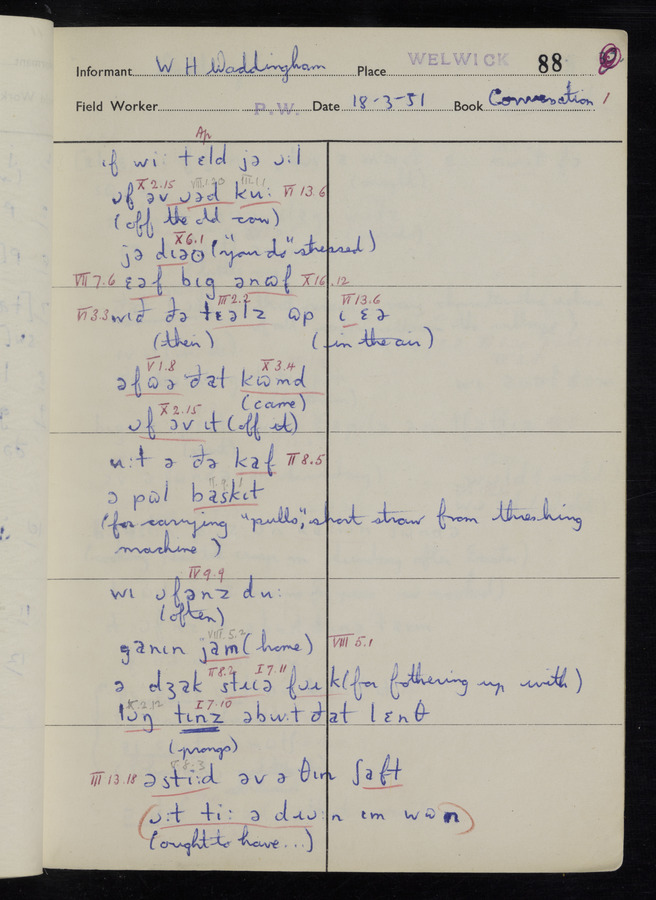 Informant W H Waddingham Place WELWICK 88
Field Worker P.W. Date 18-3-51 Book Conversation 1
Ap
ɪf wiː tɛld jə ɔːl
X 2.15 VIII.1.20 VI 13.6
ɒf əv ɔəd kuː
(off the old cow)
X 6.1
jə dɪəʊ ("you do" stressed)
VII 7.6 ɛəf bɪg ənʊf X 16.12
III 2.2 VI 13.6
VI 3.3 wɪð ðə tɛəlz ʊp ɪ ɛə
(their) (in the air)
V 1.8 X 3.4
əfʊə ðat kʊmd
(came)
X 2.15
ɒf əv ɪt (off it)
uːt ə ðə kaf II 8.5
ə pʊl baskɪt
(for carrying "pulls", short straw from threshing
machine)
IV 9.9
wɪ ɒfənz duː
(often)
VIII.5.2
ganɪn jam (home) VIII 5.1
II 8.2 I 7.11
ə dʒak stɪɪə fɔɪk (for fothering up with)
I 7.10
lɒŋ tɪnz əbuːt ðat lɛnθ
(prongs)
III 13.18 əstiːd əv ə θɪn ʃaft
ɔːt tiː ə dɪuːn ɪm wʊn
(ought to have...)